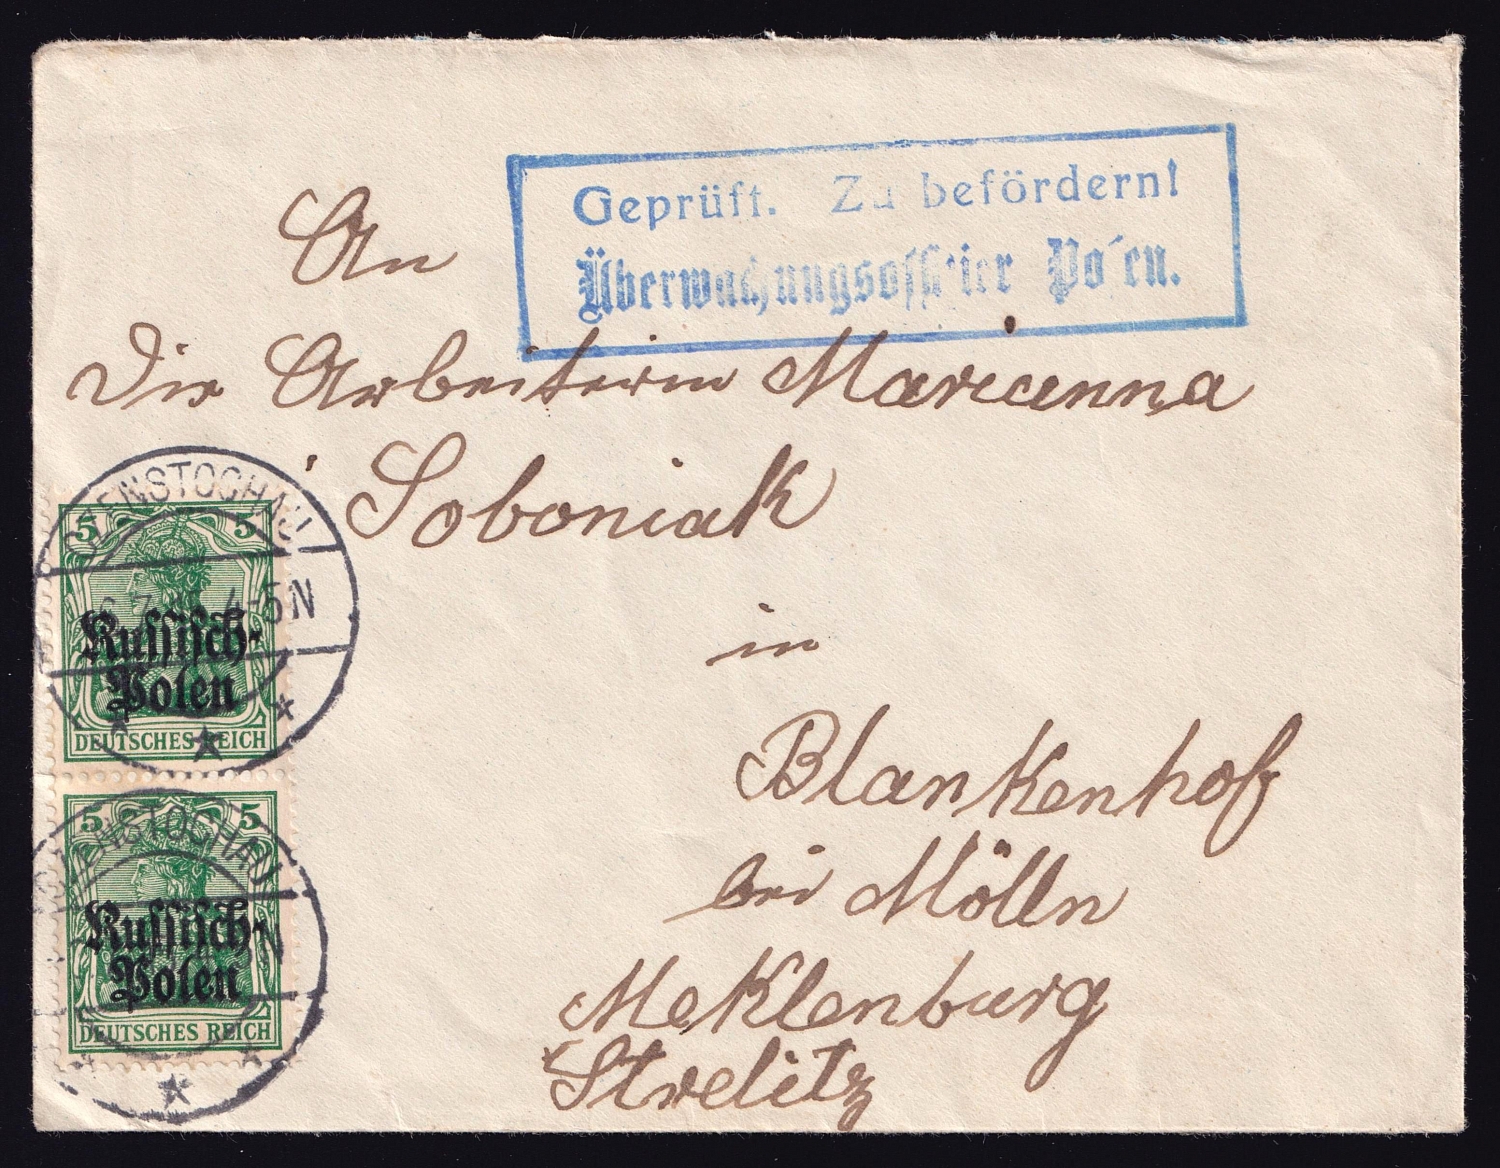 Geprüft. Zu befördern!
Überwachungsoffizier Posen.
An
Die Arbeiterin Marianna
Soboniak
in
Blankenhof
bei Mölln
Meklenburg
Strelitz
CZENSTOCHAU
4-5N
5 5
Russisch-
Polen
DEUTSCHES REICH
CZENSTOCHAU
5 5
Russisch-
Polen
DEUTSCHES REICH